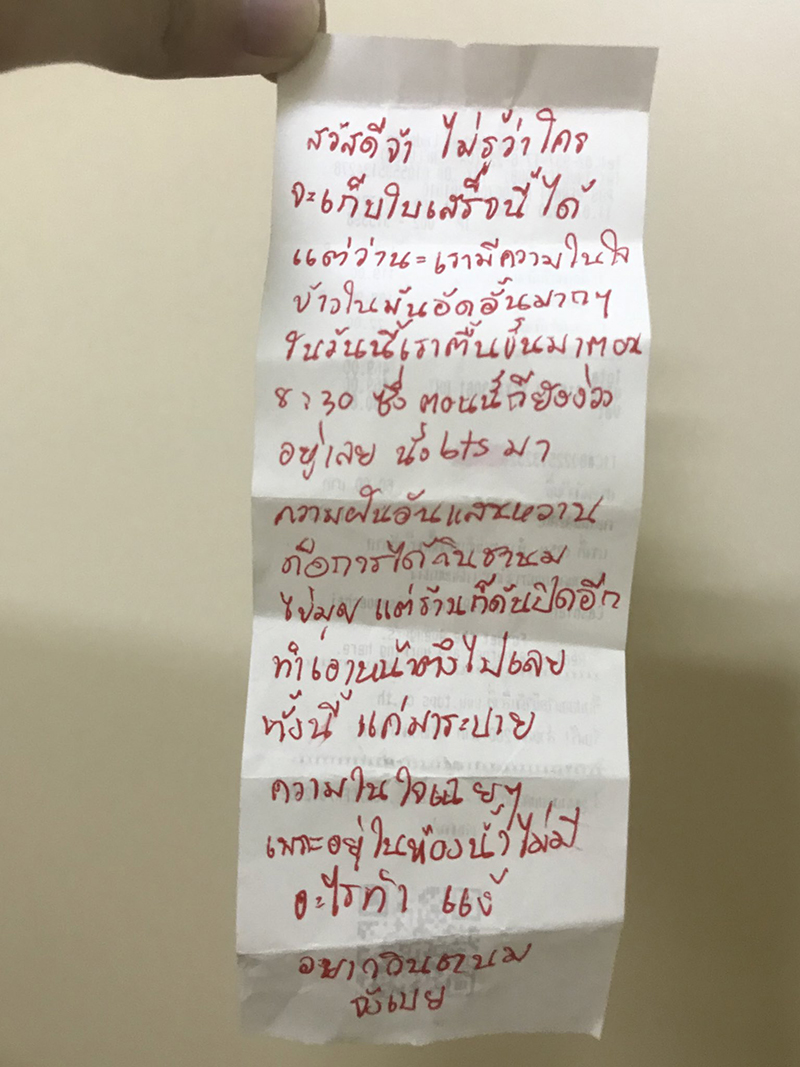 สวัสดีจ้า ไม่รู้ว่าใคร
จะเก็บใบเสร็จนี้ได้
แต่ว่านะเรามีความในใจ
ข้างในมันอัดอั้นมากๆ
ในวันนี้เราตื่นขึ้นมาตอน
8:30 ซึ่งตอนนี้ก็ยังง่วง
อยู่เลย นั่ง bts มา
ความฝันอันแสนหวาน
คือการได้กินชานม
ไข่มุข แต่ร้านก็ดันปิดอีก
ทำเอาหน้าตึงไปเลย
ทั้งนี้ แค่มาระบาย
ความในใจเฉยๆ
เพราะอยู่ในห้องน้ำไม่มี
อะไรทำ แง้
อยากกินชานม
จังเบย